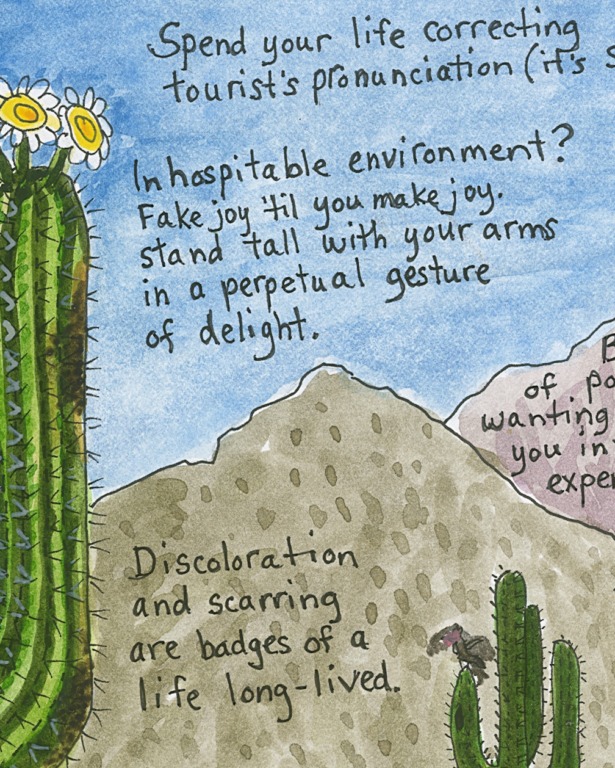 Spend your life correcting
tourist's pronunciation (it's
Inhospitable environment?
Fake joy 'til you make joy.
stand tall with your arms
in a perpetual gesture
of delight.
of
wanting
you in
Discoloration
and scarring
are badges of a
life long-lived.